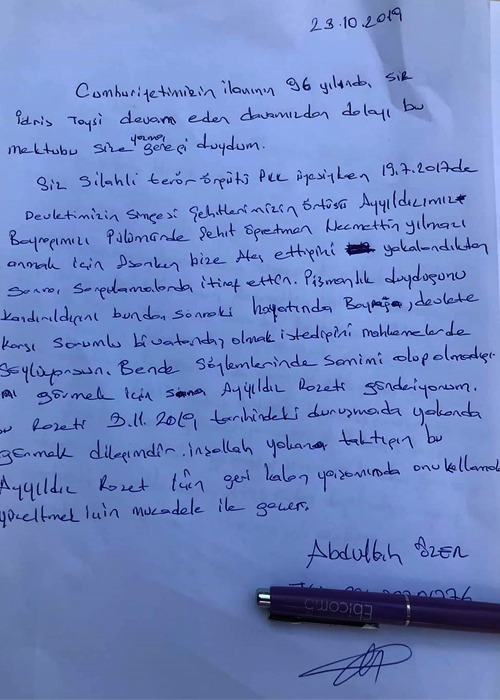 23.10.2019
Cumhuriyetimizin ilanının 96 yılında, siz
İdris Taysi devam eden davamızdan dolayı bu
mektubu size yazma gereği duydum.
Siz Silahlı terör örgütü PKK üyesiyken 19.7.2017de
Devletimizin simgesi Şehitlerimizin örtüsü Ayyıldızımız
Bayrağımızı Pülümürde Şehit öğretmen Necmettin yılmazı
anmak için Asarken bize Ateş ettiğini yakalandıktan
sonra Sorgulamalarda itiraf ettin. Pişmanlık duyduğunu
kandırıldığını bundan sonraki hayatında Bayrağa, devlete
karşı sorumlu bi vatandaş olmak istediğini mahkemelerde
söylüyorsun. Bende Söylemlerinde Samimi olup olmadığı-
nı görmek için sana Ayyıldız Rozeti gönderiyorum.
Rozeti 2019 tarihindeki duruşmada yakanda
görmek dileğimdir. inşallah yakana taktığın bu
Ayyıldız Rozet için geri kalan yaşamında onu kollamak
yüceltmek için mücadele ile geçer.
Abdullah ÖZER
Ebicomp